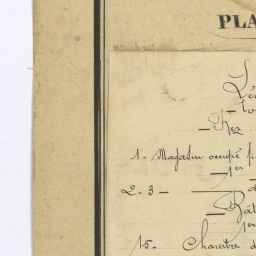 PLA
Lé
Rez
1. - Magasin occupé p
1er
2 - 3 -
Bât
1er
15. - Chambre d